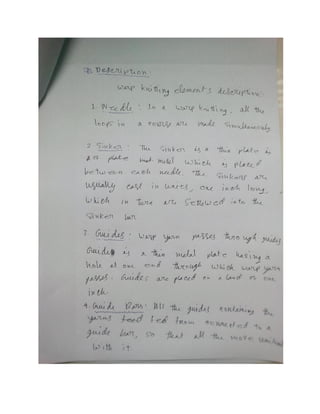 Description:
warp knitting element's description:
1. Needle: In a warp knitting, all the
loops in a course are made simultaneously
2. Sinker: The sinker is a thin plate is
plate metal which is placed
between each needle. The sinkers are
usually cast in unces, one inch long.
which in turn are screwed into the
sinker bar
3. Guides: warp yarn passes through guides
Guide is a thin metal plate having a
hole at one end through which warp yarn
passes. Guides are placed on a lead of one
inch.
4. Guide Bars: All the guides containing the
yarns feed from connected to a
guide bar, so that all the move
with it.